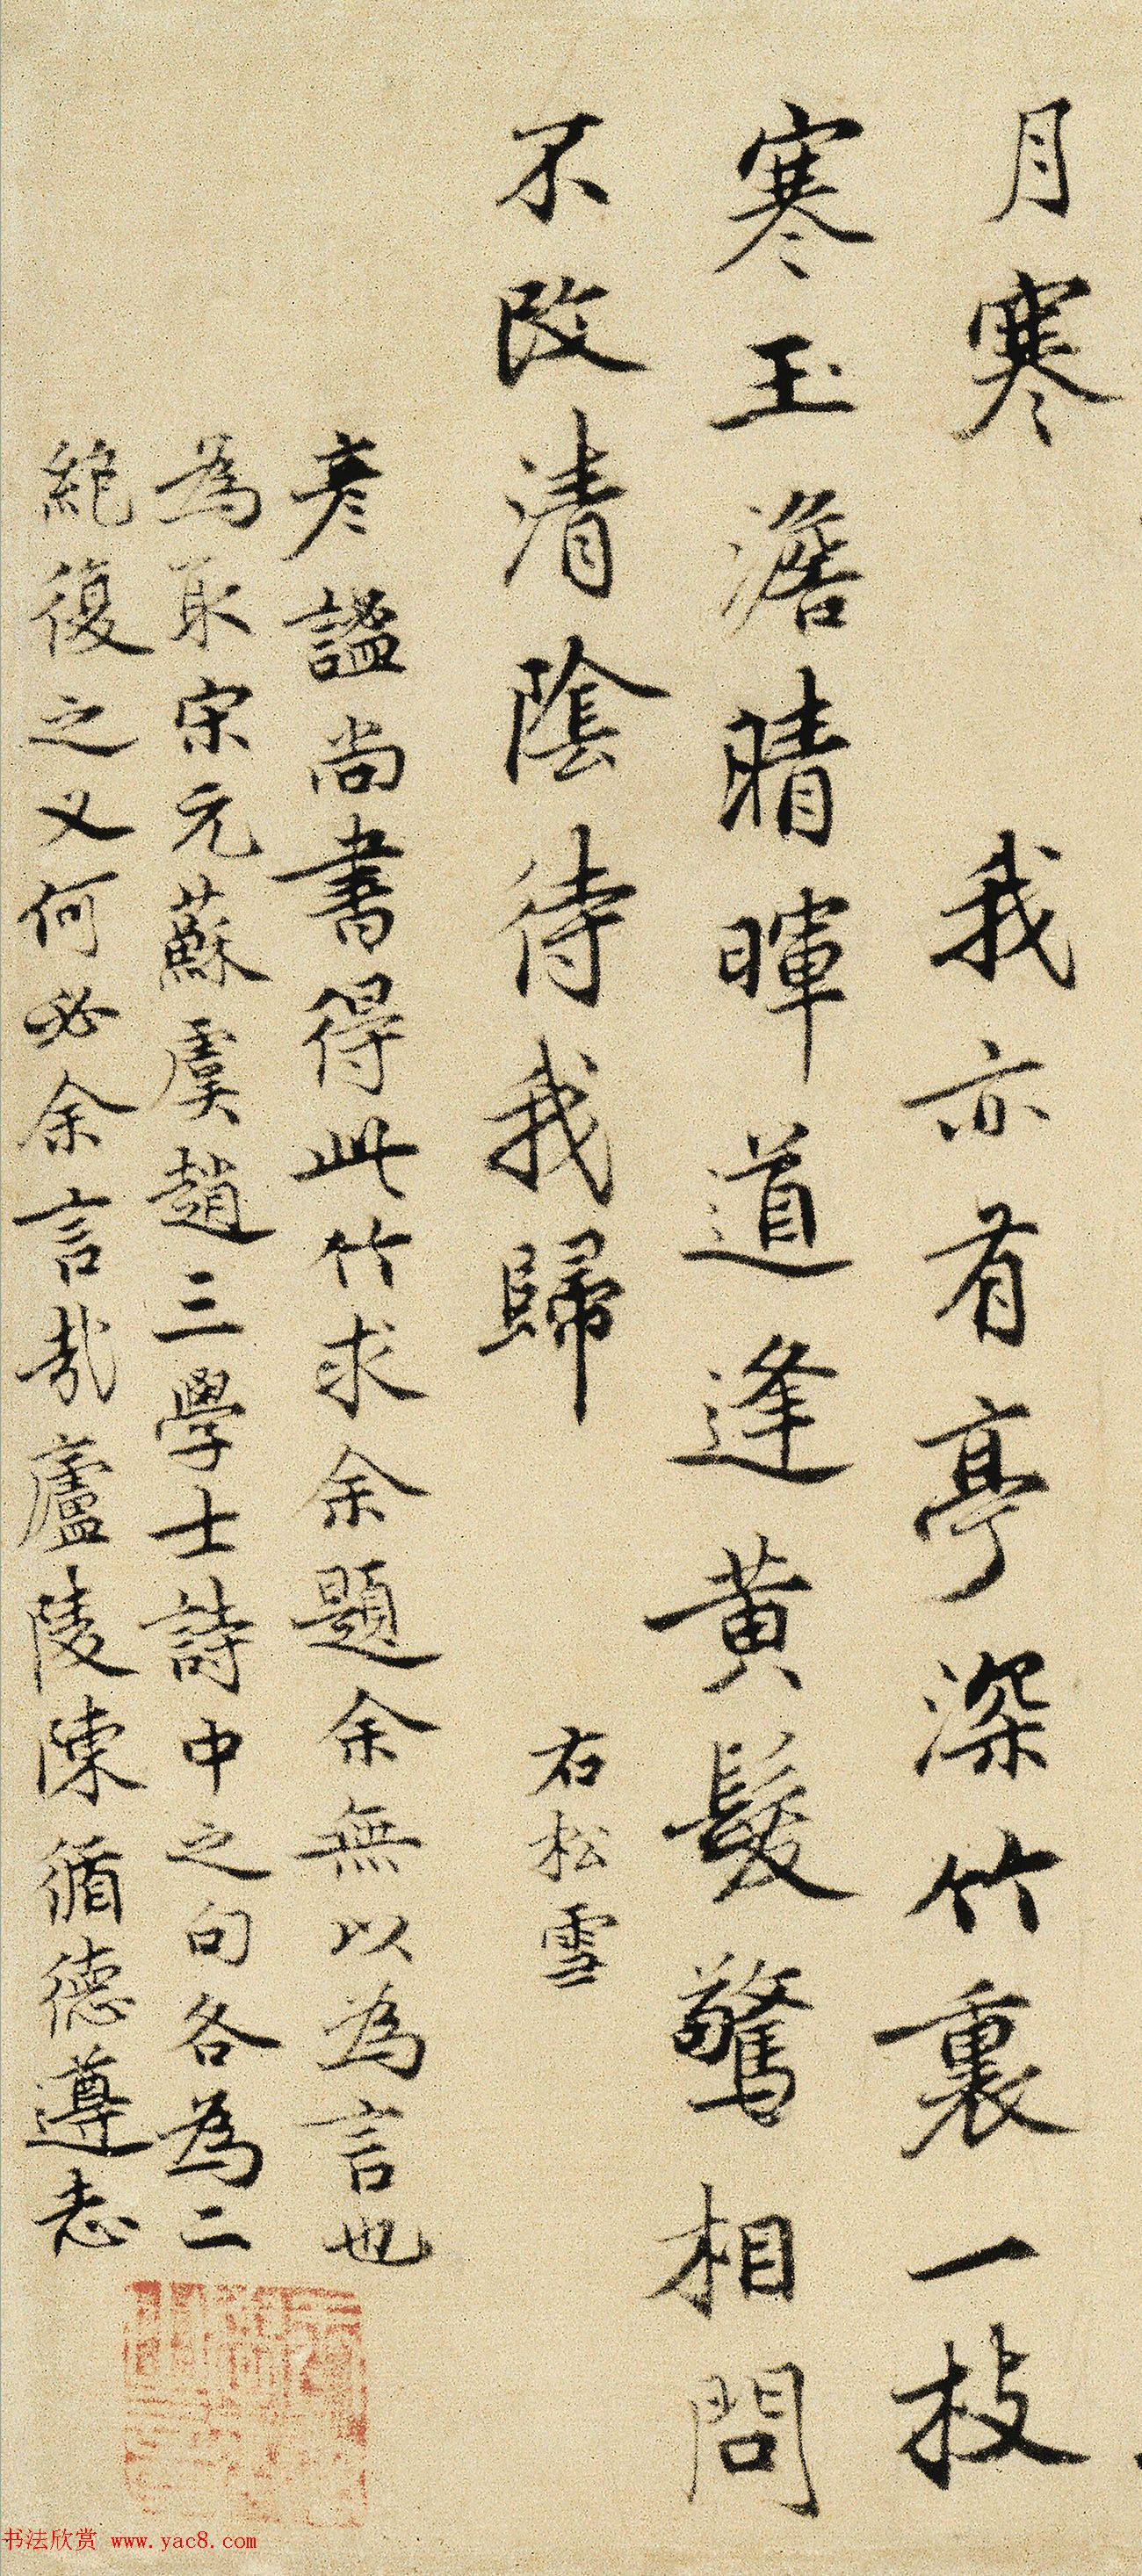 月寒　我亦有亭深竹裏一枝
寒玉澹晴暉道逢黃髮驚相問
不改清陰待我歸　右松雪
彥謐尚書得此竹求余題余無以為言也
為取宋元蘇虞趙三學士詩中之句各為二
絕復之又何必余言哉廬陵陳循德遵志
书法欣赏 www.yac8.com